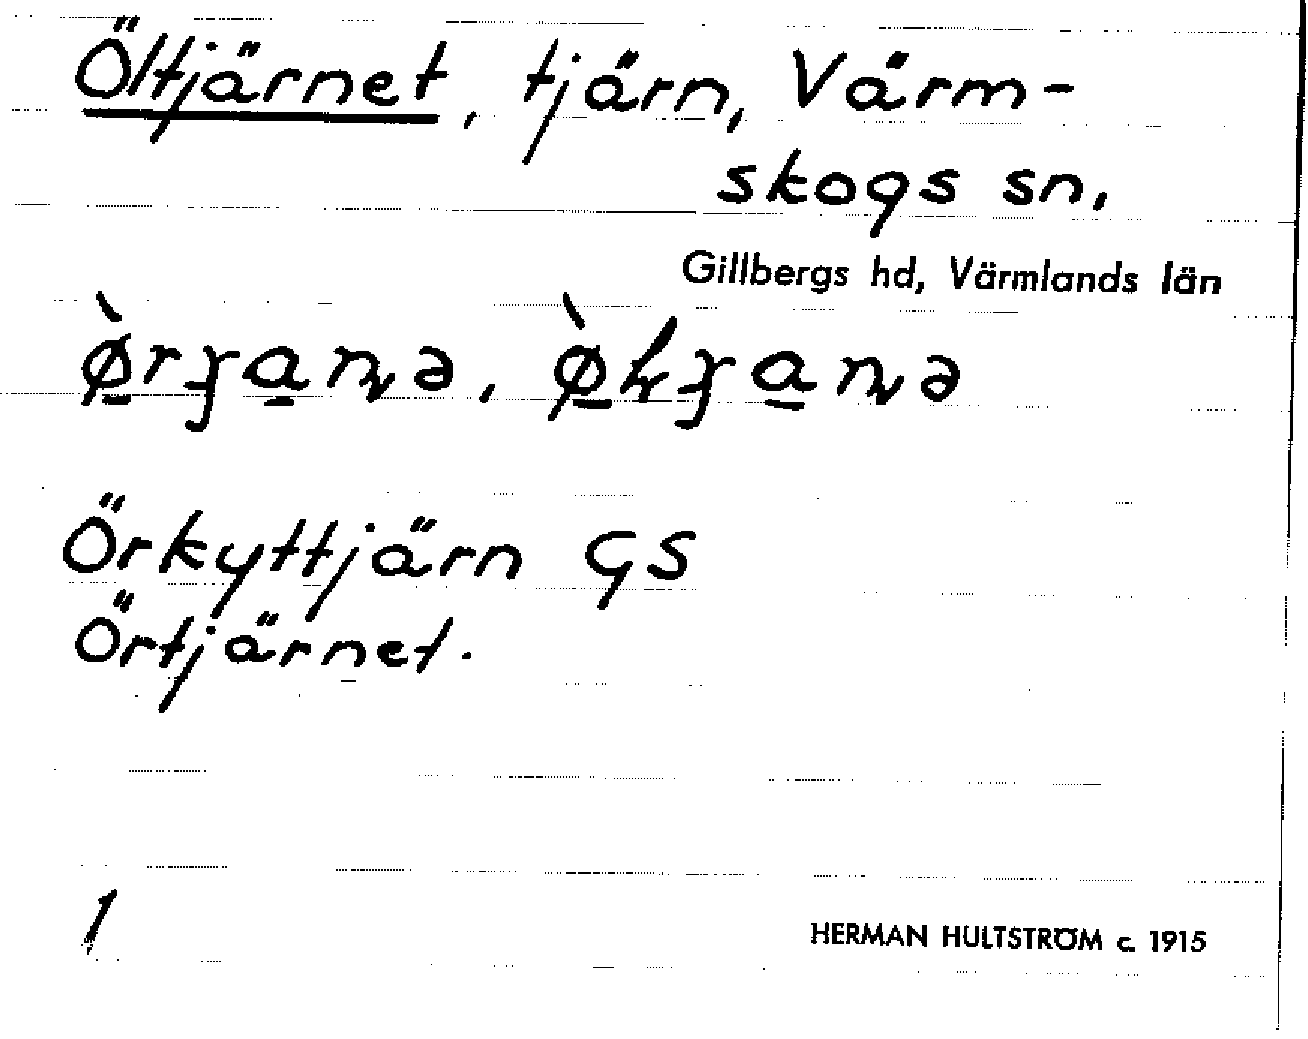 Öltjärnet, tjärn, Värm-
skogs sn,
Gillbergs hd, Värmlands län
Örkyttjärn GS
Örtjärnet.
1
HERMAN HULTSTRÖM c. 1915